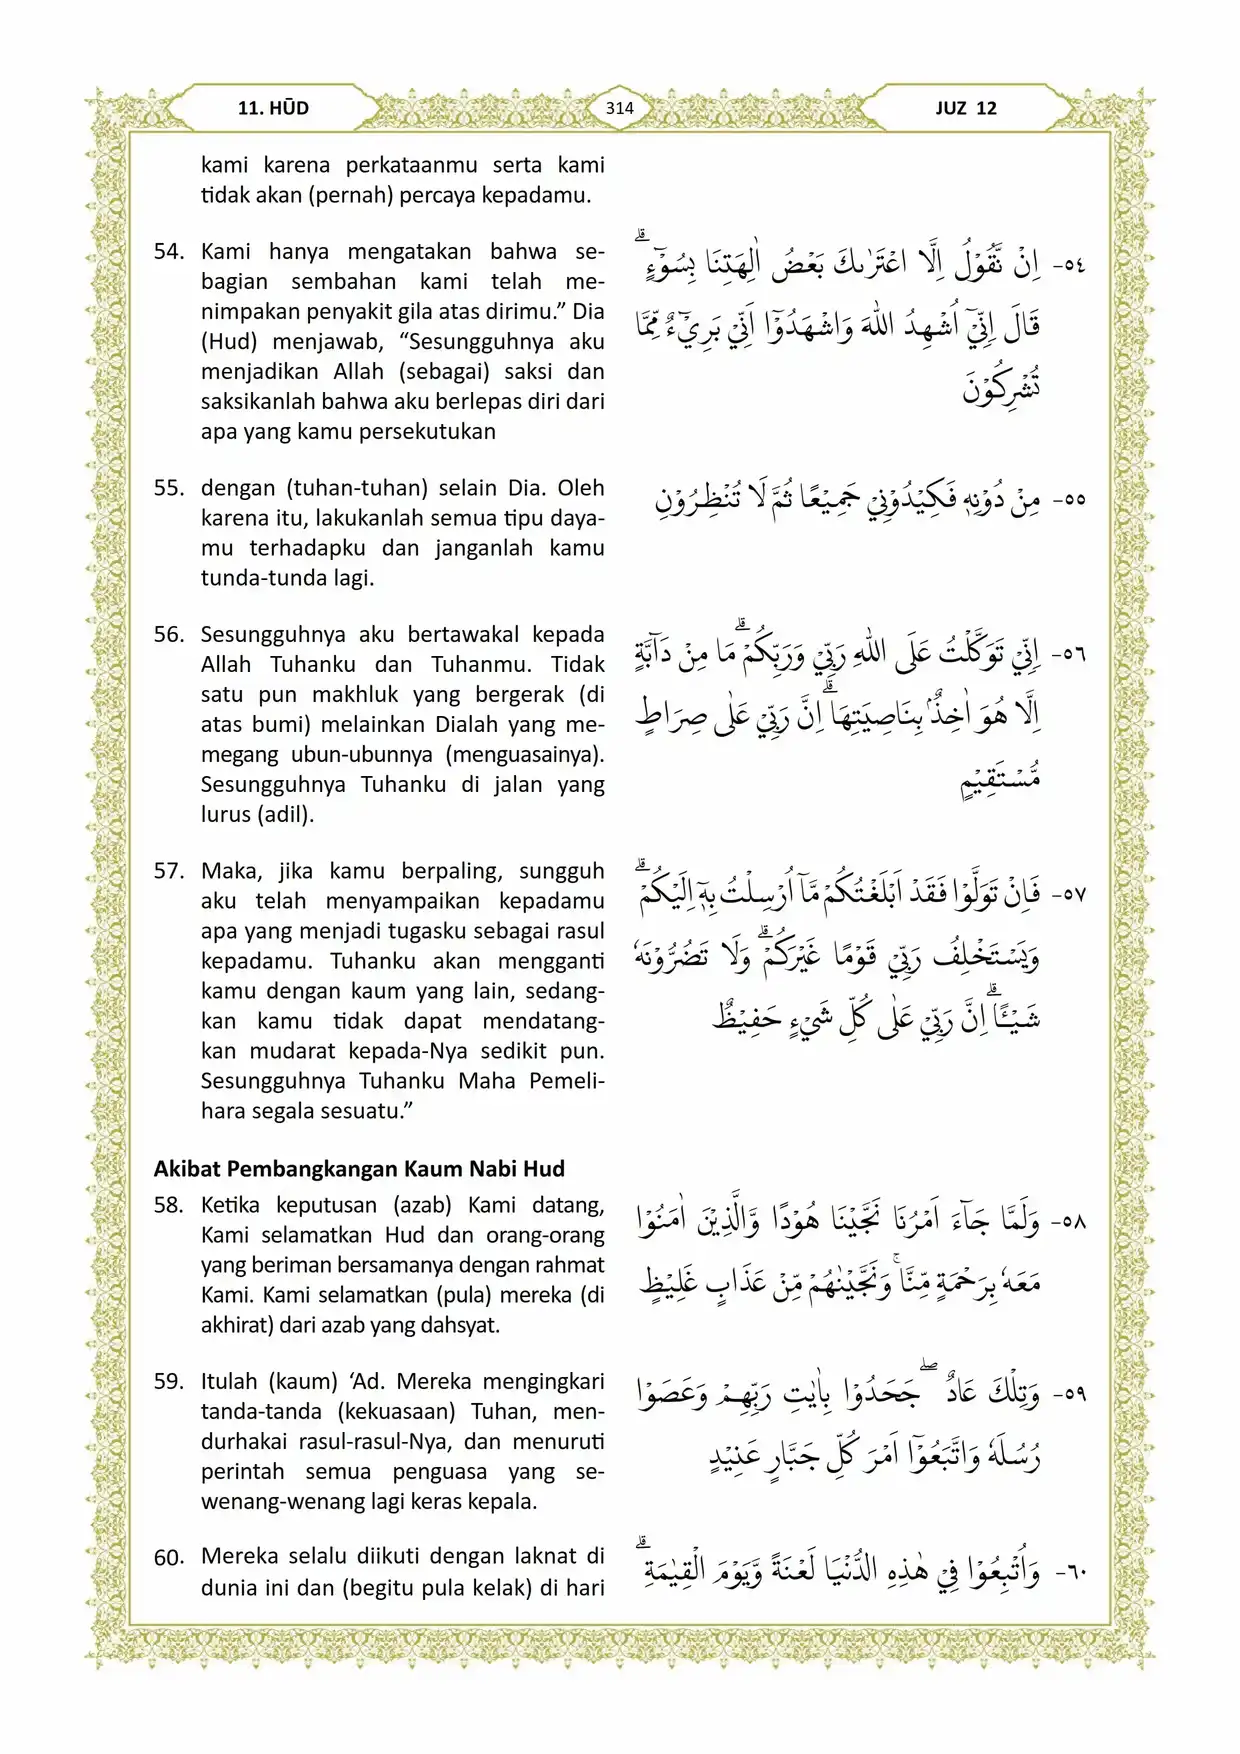 11. HŪD
314
JUZ 12
kami karena perkataanmu serta kami
tidak akan (pernah) percaya kepadamu.
54. Kami hanya mengatakan bahwa se-
bagian sembahan kami telah me-
nimpakan penyakit gila atas dirimu.” Dia
(Hud) menjawab, “Sesungguhnya aku
menjadikan Allah (sebagai) saksi dan
saksikanlah bahwa aku berlepas diri dari
apa yang kamu persekutukan
٥٤- اِنْ نَّقُوْلُ اِلَّا اعْتَرٰىكَ بَعْضُ اٰلِهَتِنَا بِسُوْۤءٍ ۗ
قَالَ اِنِّيْٓ اُشْهِدُ اللّٰهَ وَاشْهَدُوْٓا اَنِّيْ بَرِيْۤءٌ مِّمَّا
تُشْرِكُوْنَ
55. dengan (tuhan-tuhan) selain Dia. Oleh
karena itu, lakukanlah semua tipu daya-
mu terhadapku dan janganlah kamu
tunda-tunda lagi.
٥٥- مِنْ دُوْنِهٖ فَكِيْدُوْنِيْ جَمِيْعًا ثُمَّ لَا تُنْظِرُوْنِ
56. Sesungguhnya aku bertawakal kepada
Allah Tuhanku dan Tuhanmu. Tidak
satu pun makhluk yang bergerak (di
atas bumi) melainkan Dialah yang me-
megang ubun-ubunnya (menguasainya).
Sesungguhnya Tuhanku di jalan yang
lurus (adil).
٥٦- اِنِّيْ تَوَكَّلْتُ عَلَى اللّٰهِ رَبِّيْ وَرَبِّكُمْ ۗ مَا مِنْ دَاۤبَّةٍ
اِلَّا هُوَ اٰخِذٌۢ بِنَاصِيَتِهَا ۗ اِنَّ رَبِّيْ عَلٰى صِرَاطٍ
مُّسْتَقِيْمٍ
57. Maka, jika kamu berpaling, sungguh
aku telah menyampaikan kepadamu
apa yang menjadi tugasku sebagai rasul
kepadamu. Tuhanku akan mengganti
kamu dengan kaum yang lain, sedang-
kan kamu tidak dapat mendatang-
kan mudarat kepada-Nya sedikit pun.
Sesungguhnya Tuhanku Maha Pemeli-
hara segala sesuatu.”
٥٧- فَاِنْ تَوَلَّوْا فَقَدْ اَبْلَغْتُكُمْ مَّآ اُرْسِلْتُ بِهٖٓ اِلَيْكُمْ ۗ
وَيَسْتَخْلِفُ رَبِّيْ قَوْمًا غَيْرَكُمْ ۗ وَلَا تَضُرُّوْنَهٗ
شَيْـًٔا ۗ اِنَّ رَبِّيْ عَلٰى كُلِّ شَيْءٍ حَفِيْظٌ
Akibat Pembangkangan Kaum Nabi Hud
58. Ketika keputusan (azab) Kami datang,
Kami selamatkan Hud dan orang-orang
yang beriman bersamanya dengan rahmat
Kami. Kami selamatkan (pula) mereka (di
akhirat) dari azab yang dahsyat.
٥٨- وَلَمَّا جَاۤءَ اَمْرُنَا نَجَّيْنَا هُوْدًا وَّالَّذِيْنَ اٰمَنُوْا
مَعَهٗ بِرَحْمَةٍ مِّنَّا ۚ وَنَجَّيْنٰهُمْ مِّنْ عَذَابٍ غَلِيْظٍ
59. Itulah (kaum) ‘Ad. Mereka mengingkari
tanda-tanda (kekuasaan) Tuhan, men-
durhakai rasul-rasul-Nya, dan menuruti
perintah semua penguasa yang se-
wenang-wenang lagi keras kepala.
٥٩- وَتِلْكَ عَادٌ ۖ جَحَدُوْا بِاٰيٰتِ رَبِّهِمْ وَعَصَوْا
رُسُلَهٗ وَاتَّبَعُوْٓا اَمْرَ كُلِّ جَبَّارٍ عَنِيْدٍ
60. Mereka selalu diikuti dengan laknat di
dunia ini dan (begitu pula kelak) di hari
٦٠- وَاُتْبِعُوْا فِيْ هٰذِهِ الدُّنْيَا لَعْنَةً وَّيَوْمَ الْقِيٰمَةِ ۗ